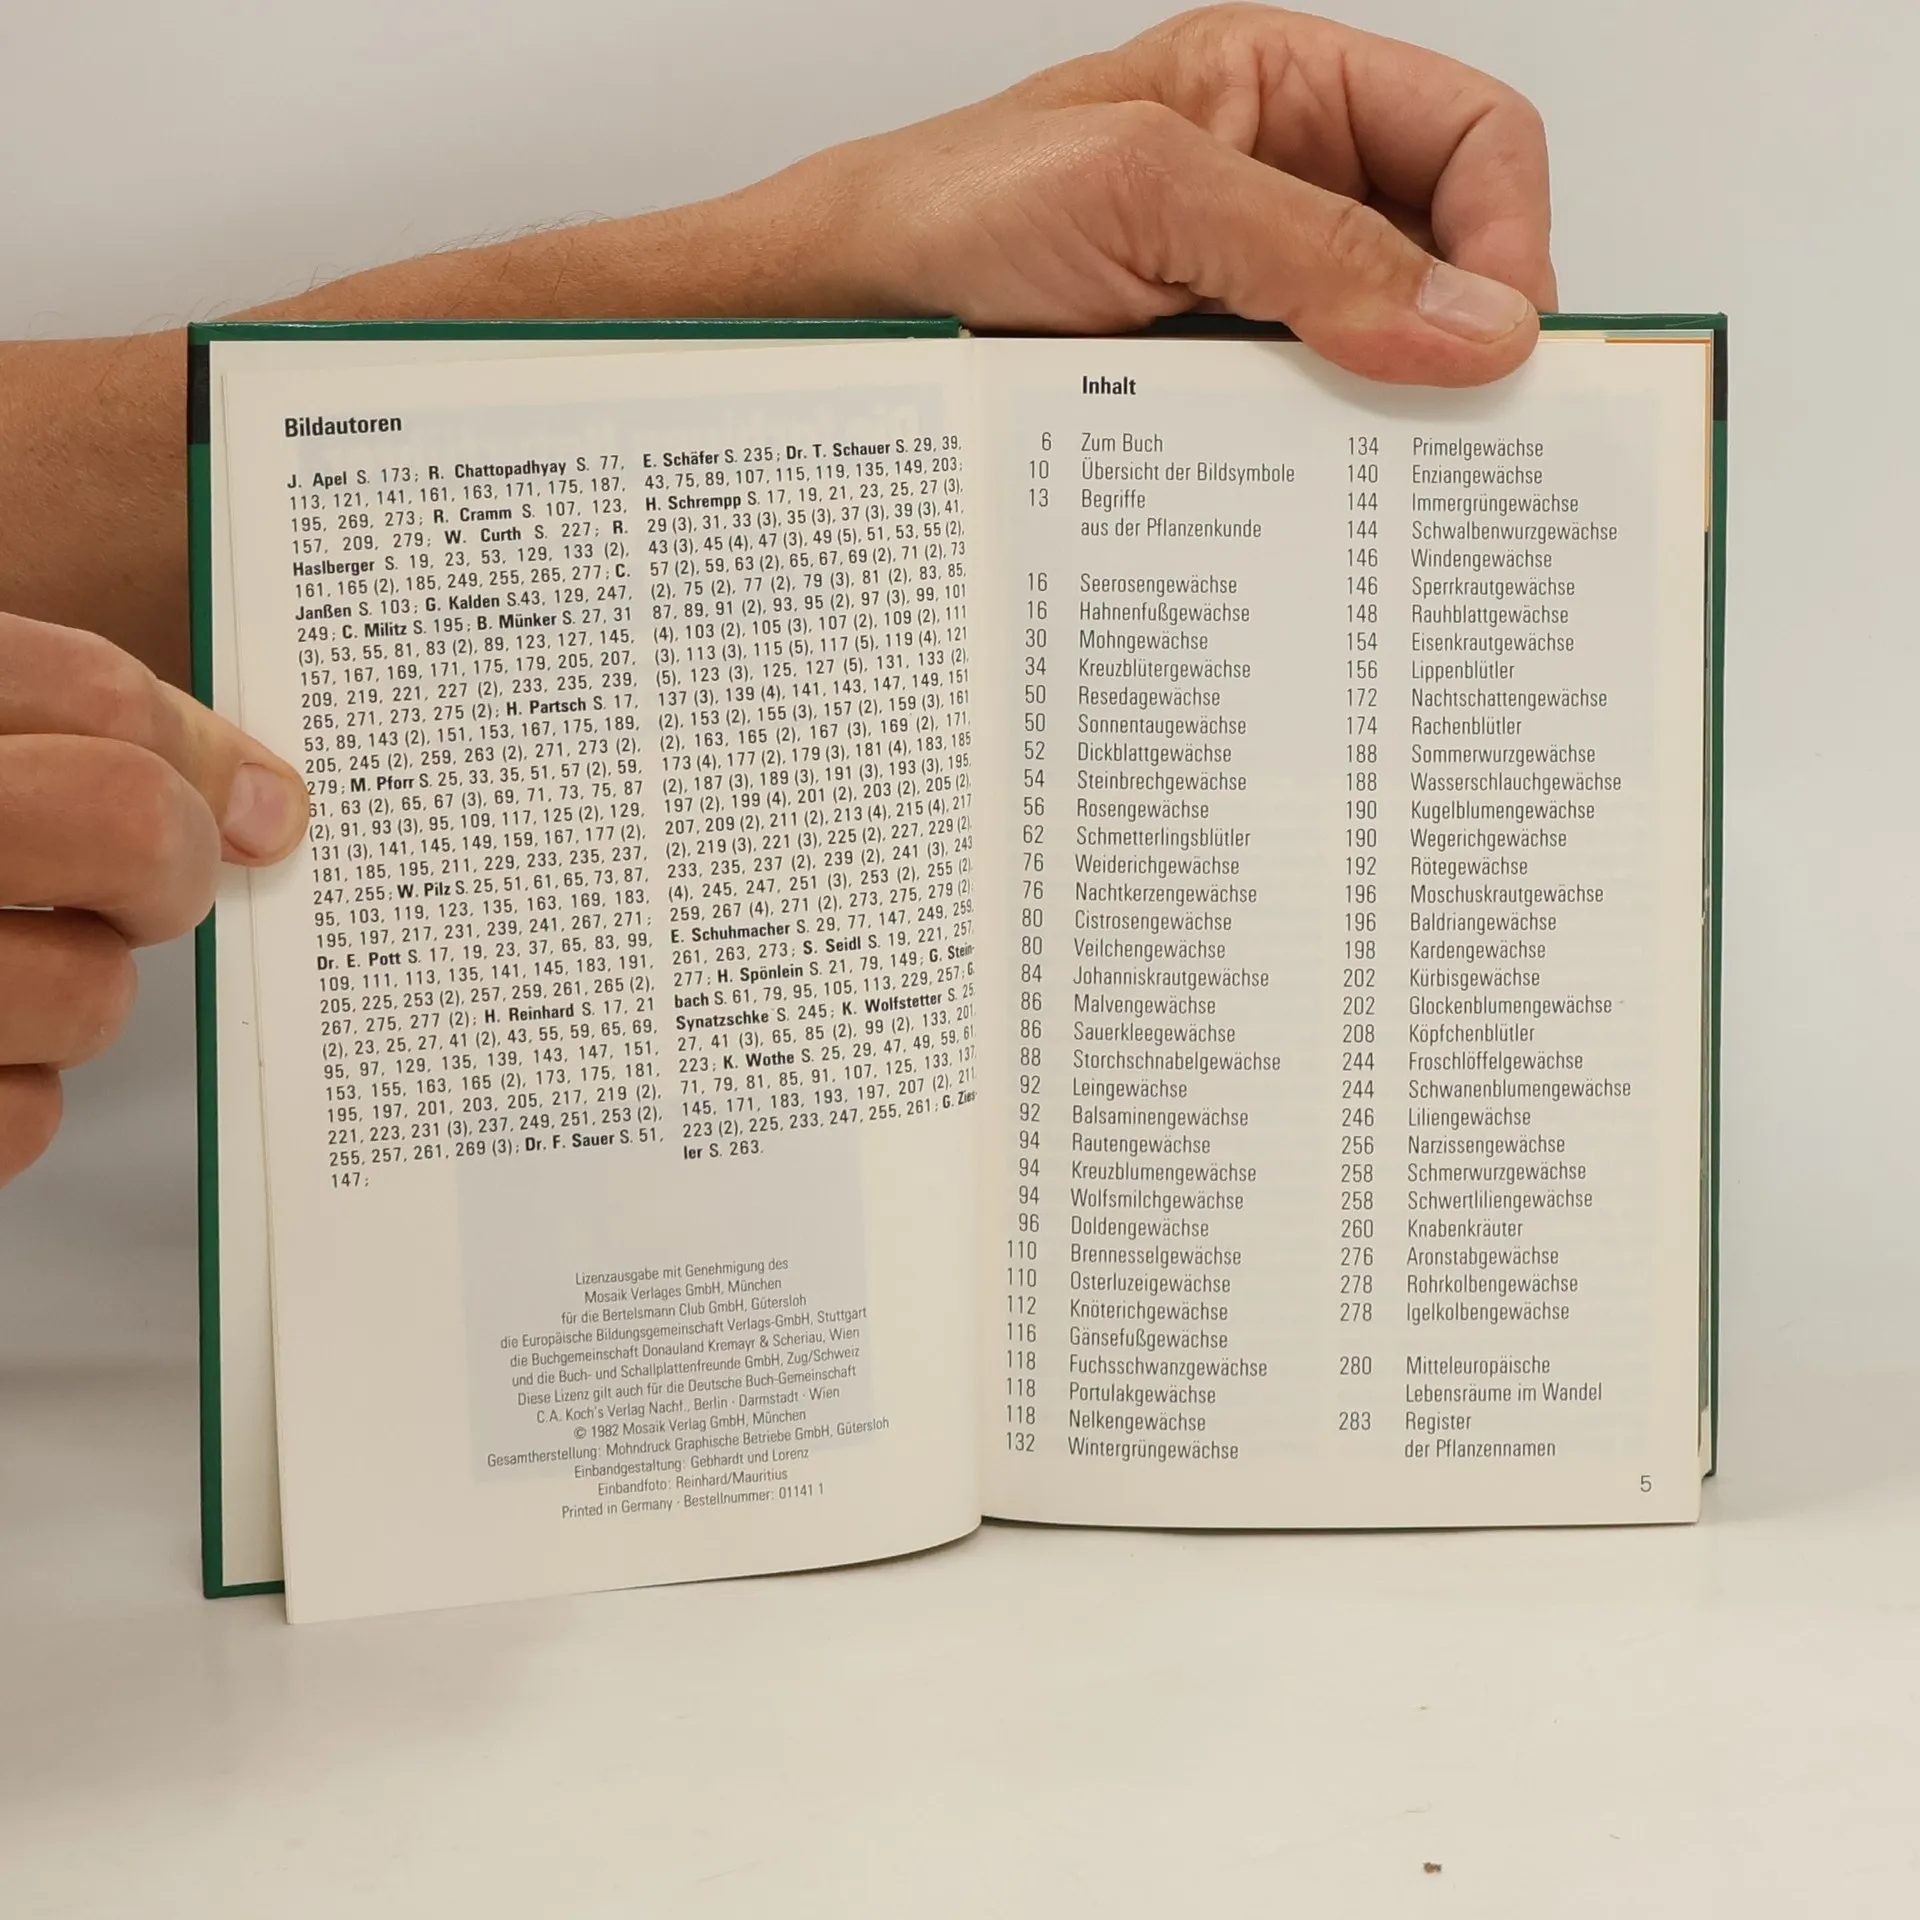 Bildautoren
J. Apel S. 173; R. Chattopadhyay S. 77,
113, 121, 141, 161, 163, 171, 175, 187,
195, 269, 273; R. Cramm S. 107, 123,
157, 209, 279; W. Curth S. 227; R.
Haslberger S. 19, 23, 53, 129, 133 (2),
161, 165 (2), 185, 249, 255, 265, 277; C.
Janßen S. 103; G. Kalden S.43, 129, 247,
249; C. Militz S. 195; B. Münker S. 27, 31
(3), 53, 55, 81, 83 (2), 89, 123, 127, 145,
157, 167, 169, 171, 175, 179, 205, 207,
209, 219, 221, 227 (2), 233, 235, 239,
265, 271, 273, 275 (2); H. Partsch S. 17,
53, 89, 143 (2), 151, 153, 167, 175, 189,
205, 245 (2), 259, 263 (2), 271, 273 (2),
279; M. Pforr S. 25, 33, 35, 51, 57 (2), 59,
61, 63 (2), 65, 67 (3), 69, 71, 73, 75, 87
(2), 91, 93 (3), 95, 109, 117, 125 (2), 129,
131 (3), 141, 145, 149, 159, 167, 177 (2),
181, 185, 195, 211, 229, 233, 235, 237,
247, 255; W. Pilz S. 25, 51, 61, 65, 73, 87,
95, 103, 119, 123, 135, 163, 169, 183,
195, 197, 217, 231, 239, 241, 267, 271;
Dr. E. Pott S. 17, 19, 23, 37, 65, 83, 99,
109, 111, 113, 135, 141, 145, 183, 191,
205, 225, 253 (2), 257, 259, 261, 265 (2),
267, 275, 277 (2); H. Reinhard S. 17, 21
(2), 23, 25, 27, 41 (2), 43, 55, 59, 65, 69,
95, 97, 129, 135, 139, 143, 147, 151,
153, 155, 163, 165 (2), 173, 175, 181,
195, 197, 201, 203, 205, 217, 219 (2),
221, 223, 231 (3), 237, 249, 251, 253 (2),
255, 257, 261, 269 (3); Dr. F. Sauer S. 51,
147;
E. Schäfer S. 235; Dr. T. Schauer S. 29, 39,
43, 75, 89, 107, 115, 119, 135, 149, 203;
H. Schrempp S. 17, 19, 21, 23, 25, 27 (3),
29 (3), 31, 33 (3), 35 (3), 37 (3), 39 (3), 41,
43 (3), 45 (4), 47 (3), 49 (5), 51, 53, 55 (2),
57 (2), 59, 63 (2), 65, 67, 69 (2), 71 (2), 73
(2), 75 (2), 77 (2), 79 (3), 81 (2), 83, 85,
87, 89, 91 (2), 93, 95 (2), 97 (3), 99, 101
(4), 103 (2), 105 (3), 107 (2), 109 (2), 111
(3), 113 (3), 115 (5), 117 (5), 119 (4), 121
(5), 123 (3), 125, 127 (5), 131, 133 (2),
137 (3), 139 (4), 141, 143, 147, 149, 151
(2), 153 (2), 155 (3), 157 (2), 159 (3), 161
(2), 163, 165 (2), 167 (3), 169 (2), 171,
173 (4), 177 (2), 179 (3), 181 (4), 183, 185
(2), 187 (3), 189 (3), 191 (3), 193 (3), 195,
197 (2), 199 (4), 201 (2), 203 (2), 205 (2),
207, 209 (2), 211 (2), 213 (4), 215 (4), 217
(2), 219 (3), 221 (3), 225 (2), 227, 229 (2),
233, 235, 237 (2), 239 (2), 241 (3), 243
(4), 245, 247, 251 (3), 253 (2), 255 (2),
259, 267 (4), 271 (2), 273, 275, 279 (2);
E. Schuhmacher S. 29, 77, 147, 249, 259,
261, 263, 273; S. Seidl S. 19, 221, 257,
277; H. Spönlein S. 21, 79, 149; G. Stein-
bach S. 61, 79, 95, 105, 113, 229, 257; G.
Synatzschke S. 245; K. Wolfstetter S. 25,
27, 41 (3), 65, 85 (2), 99 (2), 133, 201,
223; K. Wothe S. 25, 29, 47, 49, 59, 61,
71, 79, 81, 85, 91, 107, 125, 133, 137,
145, 171, 183, 193, 197, 207 (2), 211,
223 (2), 225, 233, 247, 255, 261; G. Zies-
ler S. 263.
Lizenzausgabe mit Genehmigung des
Mosaik Verlages GmbH, München
für die Bertelsmann Club GmbH, Gütersloh
die Europäische Bildungsgemeinschaft Verlags-GmbH, Stuttgart
die Buchgemeinschaft Donauland Kremayr & Scheriau, Wien
und die Buch- und Schallplattenfreunde GmbH, Zug/Schweiz
Diese Lizenz gilt auch für die Deutsche Buch-Gemeinschaft
C.A. Koch's Verlag Nachf., Berlin · Darmstadt · Wien
© 1982 Mosaik Verlag GmbH, München
Gesamtherstellung: Mohndruck Graphische Betriebe GmbH, Gütersloh
Einbandgestaltung: Gebhardt und Lorenz
Einbandfoto: Reinhard/Mauritius
Printed in Germany · Bestellnummer: 01141 1
Inhalt
6 Zum Buch
10 Übersicht der Bildsymbole
13 Begriffe
aus der Pflanzenkunde
16 Seerosengewächse
16 Hahnenfußgewächse
30 Mohngewächse
34 Kreuzblütergewächse
50 Resedagewächse
50 Sonnentaugewächse
52 Dickblattgewächse
54 Steinbrechgewächse
56 Rosengewächse
62 Schmetterlingsblütler
76 Weiderichgewächse
76 Nachtkerzengewächse
80 Cistrosengewächse
80 Veilchengewächse
84 Johanniskrautgewächse
86 Malvengewächse
86 Sauerkleegewächse
88 Storchschnabelgewächse
92 Leingewächse
92 Balsaminengewächse
94 Rautengewächse
94 Kreuzblumengewächse
94 Wolfsmilchgewächse
96 Doldengewächse
110 Brennesselgewächse
110 Osterluzeigewächse
112 Knöterichgewächse
116 Gänsefußgewächse
118 Fuchsschwanzgewächse
118 Portulakgewächse
118 Nelkengewächse
132 Wintergrüngewächse
134 Primelgewächse
140 Enziangewächse
144 Immergrüngewächse
144 Schwalbenwurzgewächse
146 Windengewächse
146 Sperrkrautgewächse
148 Rauhblattgewächse
154 Eisenkrautgewächse
156 Lippenblütler
172 Nachtschattengewächse
174 Rachenblütler
188 Sommerwurzgewächse
188 Wasserschlauchgewächse
190 Kugelblumengewächse
190 Wegerichgewächse
192 Rötegewächse
196 Moschuskrautgewächse
196 Baldriangewächse
198 Kardengewächse
202 Kürbisgewächse
202 Glockenblumengewächse
208 Köpfchenblütler
244 Froschlöffelgewächse
244 Schwanenblumengewächse
246 Liliengewächse
256 Narzissengewächse
258 Schmerwurzgewächse
258 Schwertliliengewächse
260 Knabenkräuter
276 Aronstabgewächse
278 Rohrkolbengewächse
278 Igelkolbengewächse
280 Mitteleuropäische
Lebensräume im Wandel
283 Register
der Pflanzennamen
5